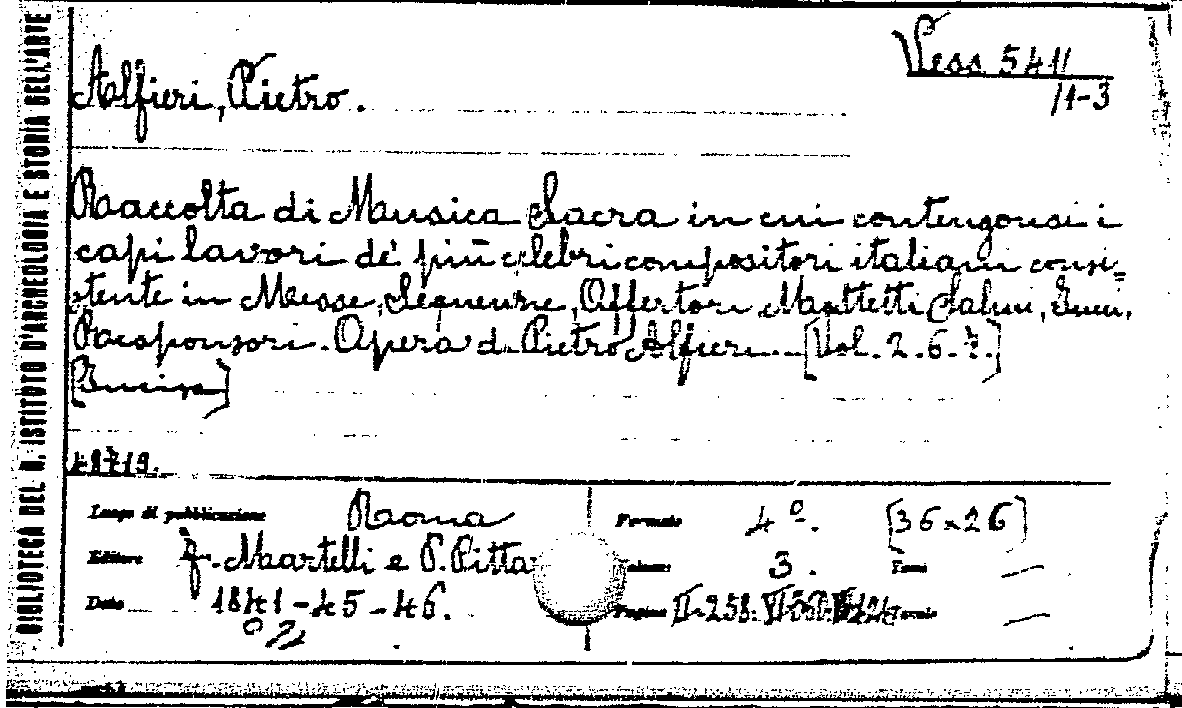 BIBLIOTECA DEL R. ISTITUTO D'ARCHEOLOGIA E STORIA DELL'ARTE
Vess 541
/1-3
Alfieri, Pietro.
Raccolta di Musica Sacra in cui contengonsi i
capi lavori de' più celebri compositori italiani consi=
stente in Messe, Sequenze, Offertori Mottetti Salmi, Inni,
Responsori. Opera di Pietro Alfieri... [Vol. 2. 6. 7.]
48719.
Luogo di pubblicazione Roma
Editore F. Martelli e P. Pitta
Data 1841-45-46.
Formato 4º. [36x26]
Volume 3. Tomo
Pagine II-258.